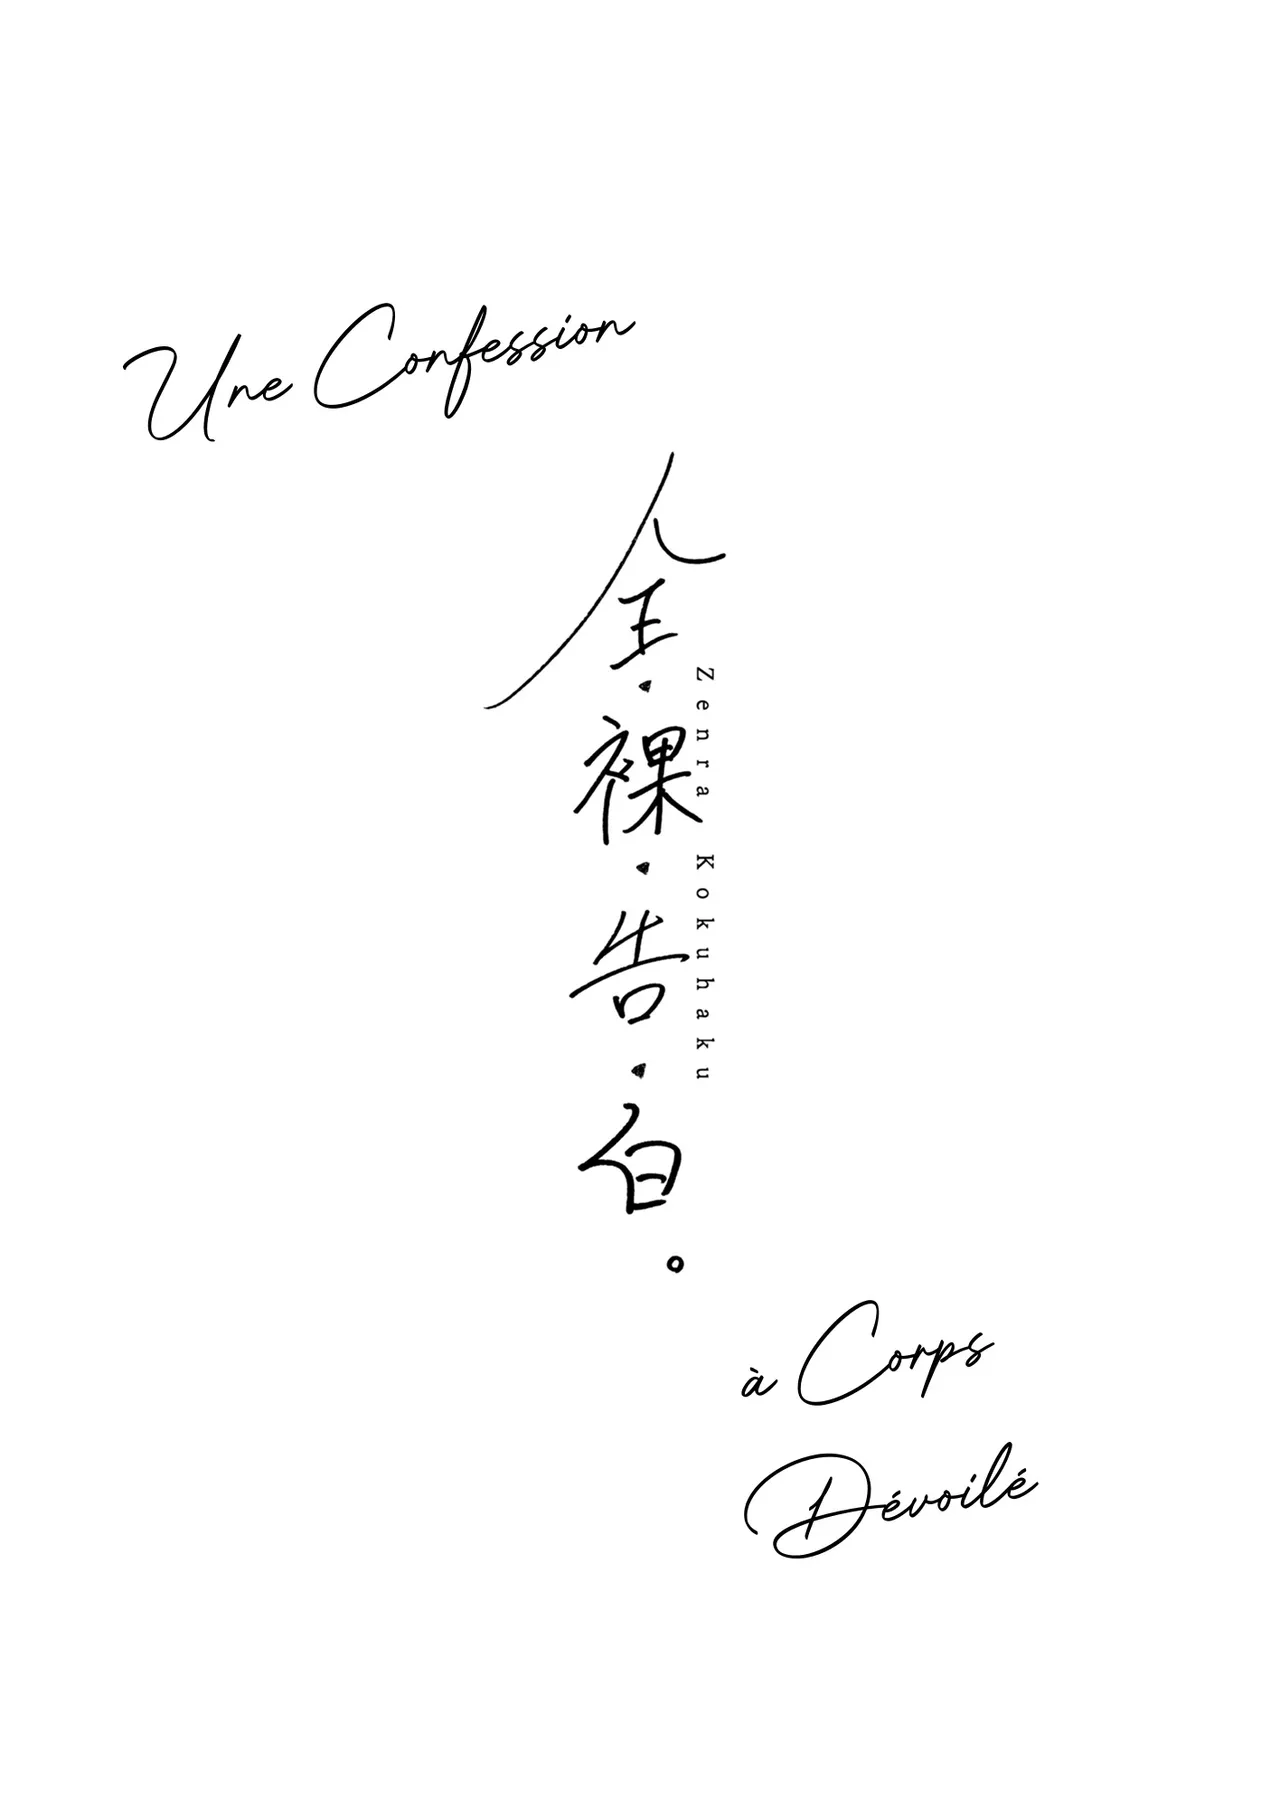 Une Confession
全・裸・告・白。
Zenra Kokuhaku
à Corps
Dévoilé